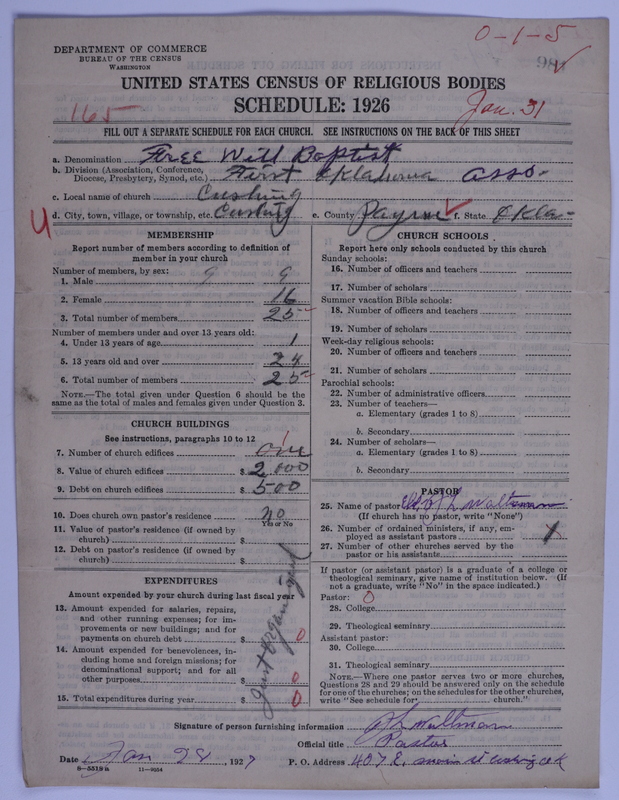 0-1-5
DEPARTMENT OF COMMERCE
BUREAU OF THE CENSUS
WASHINGTON
UNITED STATES CENSUS OF RELIGIOUS BODIES
165 SCHEDULE: 1926 Jan. 31
FILL OUT A SEPARATE SCHEDULE FOR EACH CHURCH. SEE INSTRUCTIONS ON THE BACK OF THIS SHEET
a. Denomination Free Will Baptist
b. Division (Association, Conference, Diocese, Presbytery, Synod, etc.) First Oklahoma Asso-
c. Local name of church Cushing
d. City, town, village, or township, etc. Cushing e. County Payne f. State Okla-
MEMBERSHIP
Report number of members according to definition of
member in your church
Number of members, by sex:
1. Male 9 9
2. Female 16
3. Total number of members 25
Number of members under and over 13 years old:
4. Under 13 years of age 1
5. 13 years old and over 24
6. Total number of members 25
NOTE.—The total given under Question 6 should be the
same as the total of males and females given under Question 3.
CHURCH BUILDINGS
See instructions, paragraphs 10 to 12
7. Number of church edifices one 1
8. Value of church edifices $ 2,000
9. Debt on church edifices $ 500
10. Does church own pastor's residence no
Yes or No
11. Value of pastor's residence (if owned by
church) $
12. Debt on pastor's residence (if owned by
church) $
EXPENDITURES
Amount expended by your church during last fiscal year
13. Amount expended for salaries, repairs,
and other running expenses; for im-
provements or new buildings; and for
payments on church debt $ 0
14. Amount expended for benevolences, in-
cluding home and foreign missions; for
denominational support; and for all
other purposes $ 0
15. Total expenditures during year $ 0
Just organized
CHURCH SCHOOLS
Report here only schools conducted by this church
Sunday schools:
16. Number of officers and teachers
17. Number of scholars
Summer vacation Bible schools:
18. Number of officers and teachers
19. Number of scholars
Week-day religious schools:
20. Number of officers and teachers
21. Number of scholars
Parochial schools:
22. Number of administrative officers
23. Number of teachers—
a. Elementary (grades 1 to 8)
b. Secondary
24. Number of scholars—
a. Elementary (grades 1 to 8)
b. Secondary
PASTOR
25. Name of pastor
(If church has no pastor, write "None")
26. Number of ordained ministers, if any, em-
ployed as assistant pastors
27. Number of other churches served by the
pastor or his assistants
If pastor (or assistant pastor) is a graduate of a college or
theological seminary, give name of institution below. (If
not a graduate, write "No" in the space indicated.)
Pastor: 0
28. College
29. Theological seminary
Assistant pastor:
30. College
31. Theological seminary
NOTE.—Where one pastor serves two or more churches,
Questions 28 and 29 should be answered only on the schedule
for one of the churches; on the schedules for the other churches,
write "See schedule for church."
Signature of person furnishing information
Official title Pastor
Date Jan 28, 1927 P. O. Address 407 E. st Cushing
8-5519a 11-9054